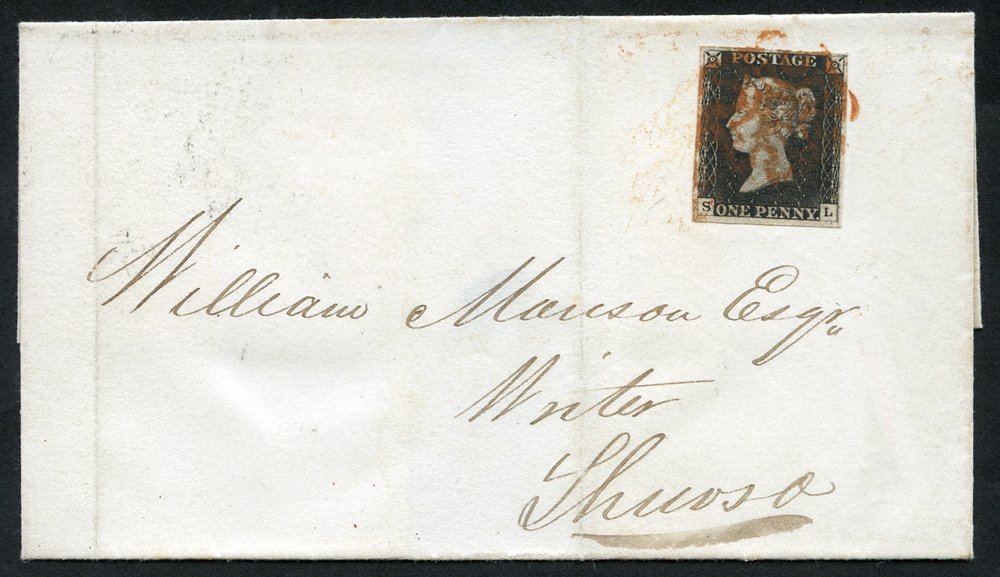 POSTAGE
S ONE PENNY L
William Manson Esqr.
Writer
Thurso